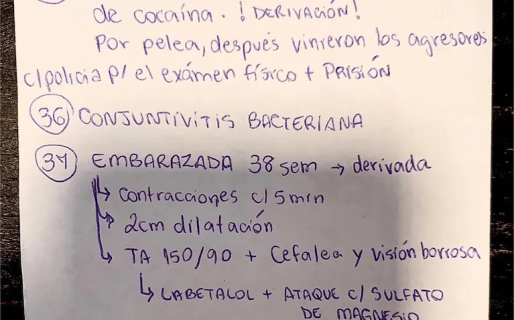 de cocaína. ! DERIVACIÓN!
Por pelea, después vinieron los agresores
c/policia p/ el exámen físico + PRISIÓN
36 CONJUNTIVITIS BACTERIANA
37 EMBARAZADA 38 sem → derivada
↳ contracciones c/ 5 min
↳ 2cm dilatación
↳ TA 150/90 + Cefalea y visión borrosa
↳ LABETALOL + ATAQUE c/ SULFATO
DE MAGNESIO